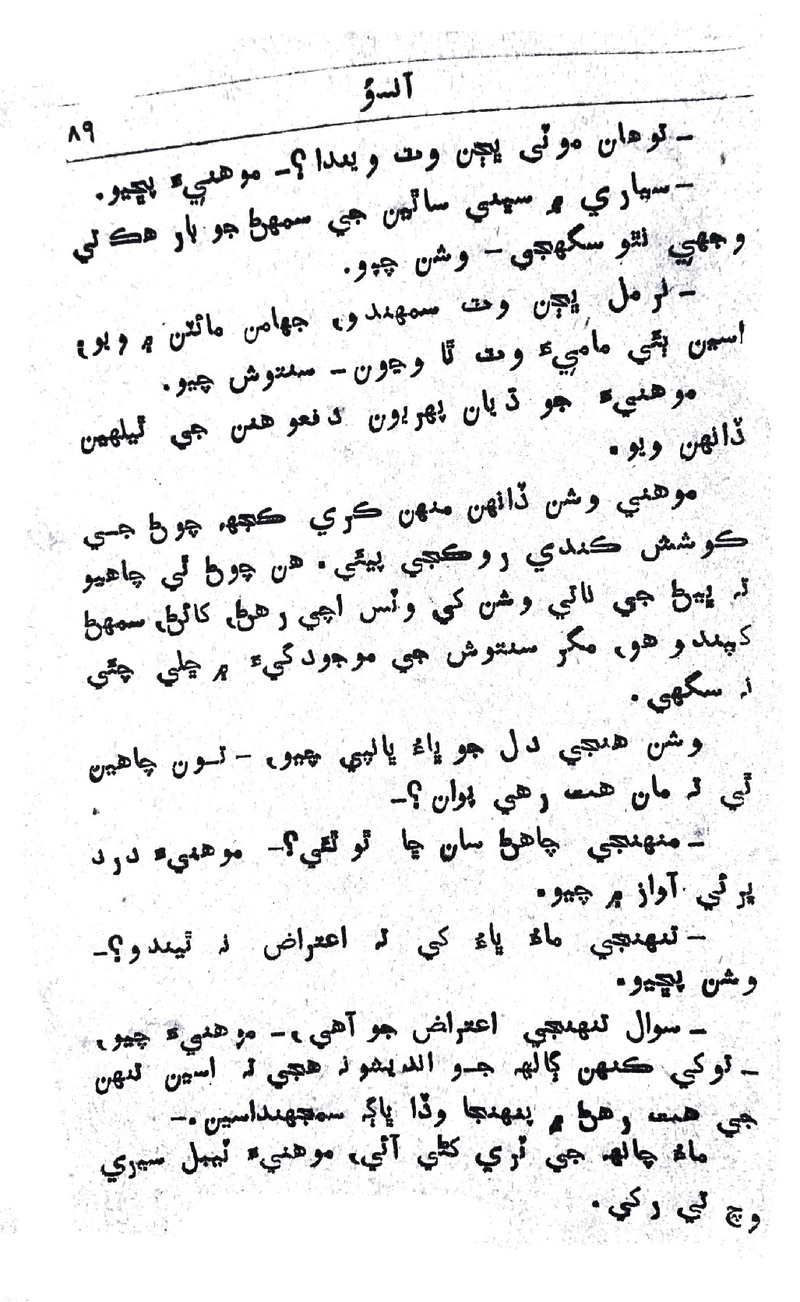 آلسؤ
۸۹
— توهان موٽي ڀڃن وٽ ويندا؟— موهنيءَ پڇيو.
— سياري ۾ سڀني ساٿين جي سمهڻ جو بار هڪ تي
وجهي نٿو سگهجي — وشن چيو.
— نرمل ڀڃن وٽ سمهندو، جهامن مائٽن ۾ ويو،
اسين ٻئي ماميءَ وٽ ٿا وڃون — سنتوش چيو.
موهنيءَ جو ڌيان پهريون دفعو هنن جي ٿيلهين
ڏانهن ويو.
موهني وشن ڏانهن منهن ڪري ڪجهہ چوڻ جي
ڪوشش ڪندي روڪجي پيئي. هن چوڻ ٿي چاهيو
تہ ڀيڻ جي ناتي وشن کي وٽس اچي رهڻ، کائڻ، سمهڻ
کپندو هو، مگر سنتوش جي موجودگيءَ ۾ ڇلي چئي
نہ سگهي.
وشن هنجي دل جو ڀاءُ ڀانپي چيو، — تون چاهين
ٿي تہ مان هت رهي پوان؟—
— منهنجي چاهڻ سان ڇا ٿو ٿئي؟— موهنيءَ درد
ڀرئي آواز ۾ چيو.
— تنهنجي ماءُ پاءُ کي تہ اعتراض نہ ٿيندو؟—
وشن پڇيو.
— سوال تنهنجي اعتراض جو آهي، — موهنيءَ چيو،
— توکي ڪنهن ڳالهہ جو انديشو نہ هجي تہ اسين تنهن
جي هت رهڻ ۾ پنهنجا وڏا ڀاڳہ سمجهنداسين.—
ماءُ چانهہ جي ٽري کڻي آئي، موهنيءَ ٽيبل سيري
وچ تي رکي.